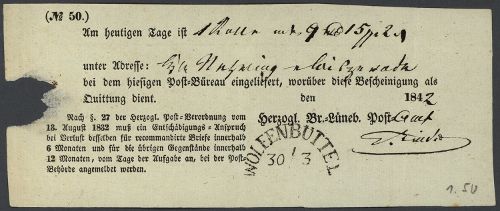 (№ 50.)
Am heutigen Tage ist 1 Rolle
unter Adresse:
bei dem hiesigen Post-Büreau eingeliefert, worüber diese Bescheinigung als
Quittung dient.
den 1842
Nach §. 27 der Herzogl. Post-Verordnung vom
13. August 1832 muß ein Entschädigungs-Anspruch
bei Verlust desselben für recommandirte Briefe innerhalb
6 Monaten und für die übrigen Gegenstände innerhalb
12 Monaten, vom Tage der Aufgabe an, bei der Post-
Behörde angemeldet werden.
Herzogl. Br.-Lüneb. Post
WOLFENBÜTTEL
30/3
1.50